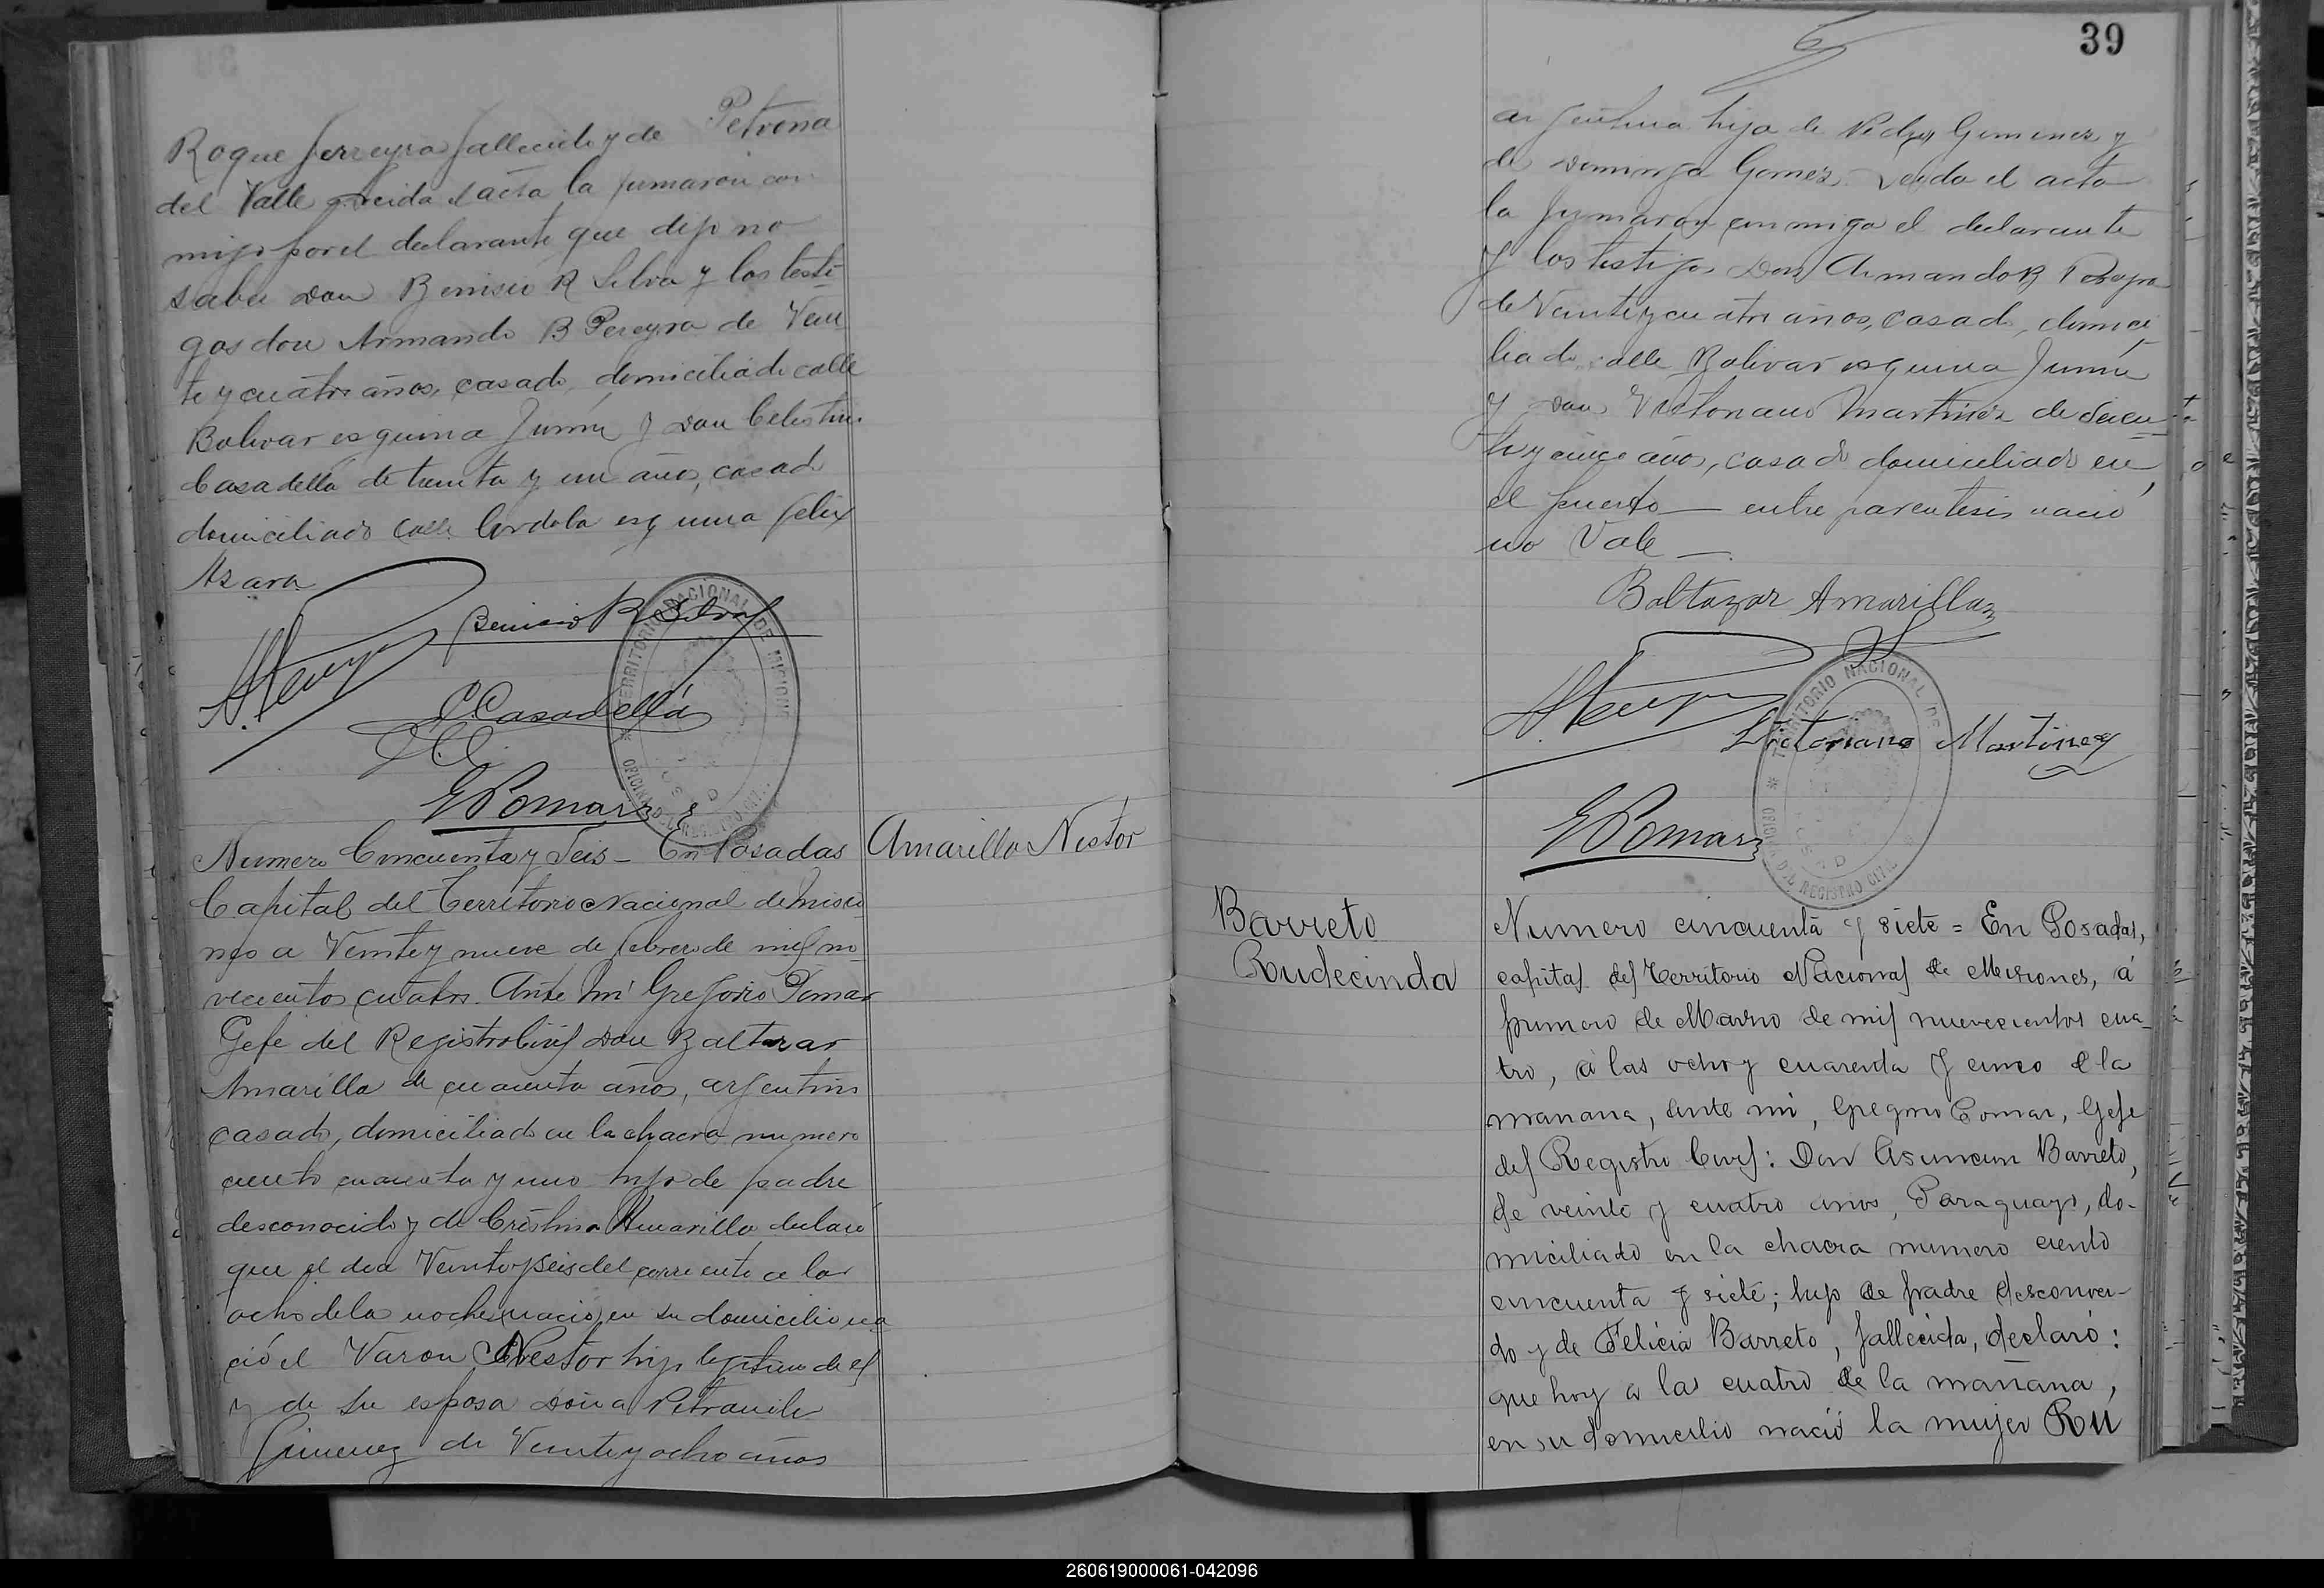 Roque Ferreyra fallecido y de Petrona
del Valle Leida el acta la firmaron con
migo por el declarante que dijo no
saber Don Benisio R Silva y los testi-
gos don Armando B Pereyra de Vein
te y cuatro años, casado, domiciliado calle
Bolivar esquina Junin y Don Celestino
Casadellá de treinta y un años, casado
domiciliado calle Cordoba esquina Felix
Azara
Benicio R Silva
C. Casadellá
G Pomar
Numero Cincuenta y Seis - En Posadas
Amarilla Nestor
Capital del Territorio Nacional de Misio
nes a Veinte y nueve de febrero de mil no
vecientos cuatro. Ante Mi Gregorio Pomar
Gefe del Registro Civil Don Baltazar
Amarilla de cuarenta años, argentino
casado, domiciliado en la chacra numero
ciento cuarenta y uno hijo de padre
desconocido y de Cristina Amarilla declaró
que el dia Veinte y seis del corriente a las
ocho de la noche (nació) en su domicilio na
ció el Varon Nestor hijo legitimo de el
y de su esposa Doña Petronila
Gimenez de Veinte y ocho años
39
argentina hija de Pedro Gimenez y
de Dominga Gomez. Leida el acta
la firmaron conmigo el declarante
y los testigos Don Armando B Pereyra
de Veinte y cuatro años, casado, domici
liado calle Bolivar esquina Junin
y Don Victoriano Martinez de
y cinco años, casado domiciliado en
el puerto — entre parentesis nació
no Vale —
Baltazar Amarilla
Victoriano Martinez
G Pomar
TERRITORIO NACIONAL DE MISIONES
OFICINA DEL REGISTRO CIVIL
Barreto
Rudecinda
Numero cincuenta y siete = En Posadas,
capital del Territorio Nacional de Misiones, á
primero de Marzo de mil nuevecientos cua-
tro, á las ocho y cuarenta y cinco de la
mañana, ante mi, Gregorio Pomar, Gefe
del Registro Civil: Don Asuncion Barreto,
de veinte y cuatro años, Paraguayo, do-
miciliado en la chacra numero ciento
cincuenta y siete; hijo de padre desconoci-
do y de Felicia Barreto, fallecida, declaró:
que hoy a las cuatro de la mañana,
en su domicilio nació la mujer Ru
260619000061-042096